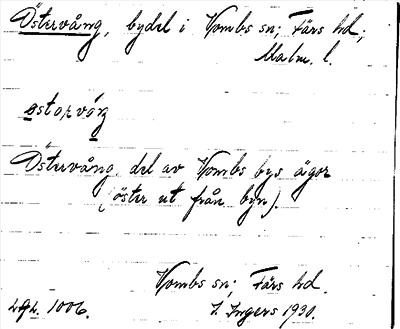 Östervång, bydel i Vombs sn; Färs hd;
Malm. l.
ostorvóŋ
Östervång, del av Vombs bys ägor
(öster ut från byn).
Vombs sn; Färs hd.
1006. I. Ingers 1930.